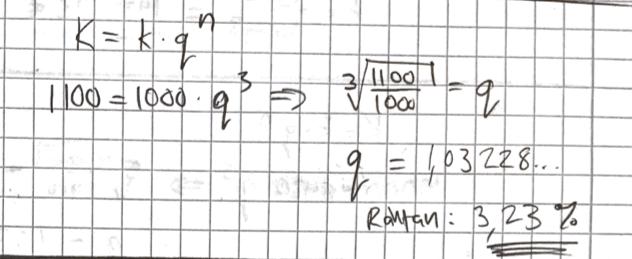 K = k · qⁿ
1100 = 1000 · q³ ⇒ ∛(1100/1000) = q
q = 1,03228...
Räntan: 3,23 %